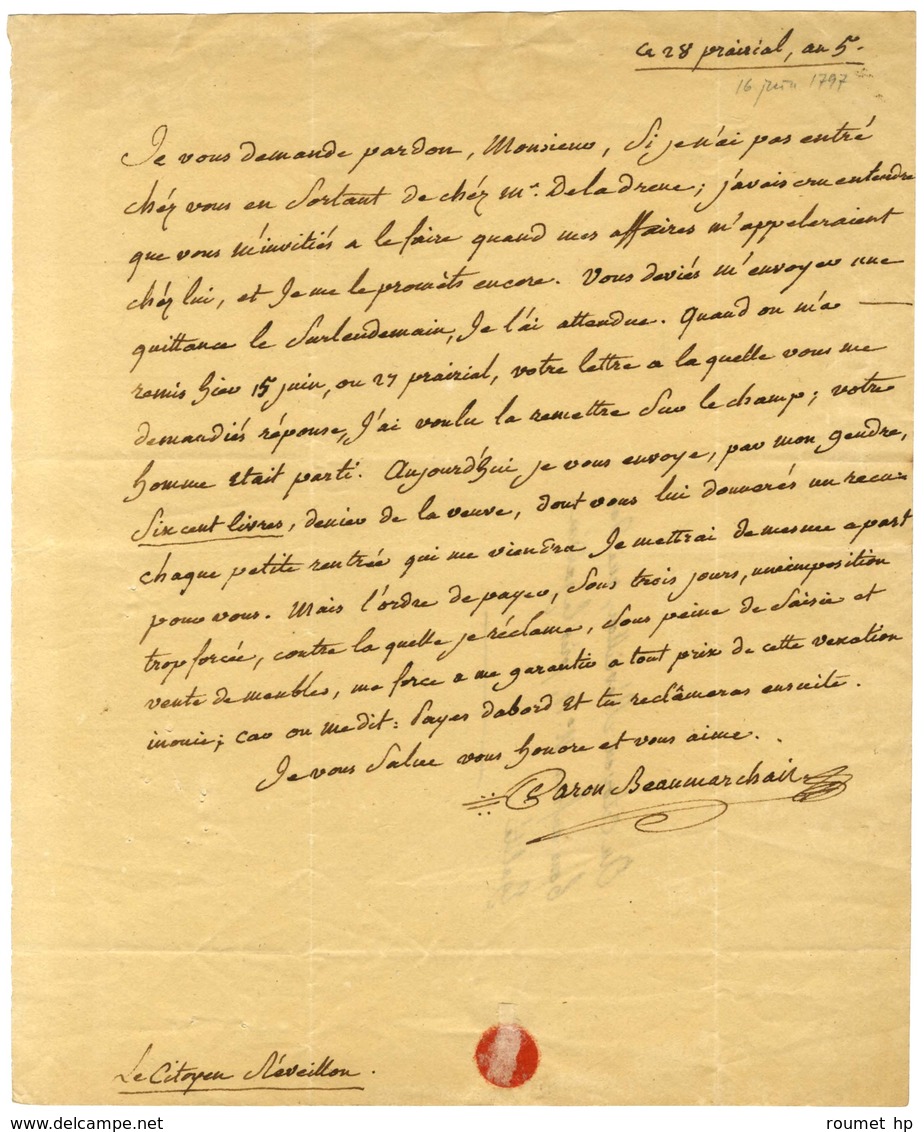 ce 28 prairial, an 5e.
16 juin 1797
Je vous demande pardon, Monsieur, Si je n'ai pas entré
chéz vous en Sortant de chéz mr. Deladreue; j'avais cru entendre
que vous m'invitiés a le faire quand mes affaires m'appeleraient
chéz lui, et Je me le prométs encore. Vous deviés m'envoyer une
quittance le Surlendemain, Je l'ai attendue. Quand on m'a
remis hier 15 juin, ou 27 prairial, votre lettre a la quelle vous me
demandiés réponse, J'ai voulu la remettre Sur le champ; votre
homme Etait parti. Aujourd'hui je vous envoye, par mon gendre,
Six cent livres, denier de la veuve, dont vous lui donnerés un recu-
chaque petite rentrée qui me viendra Je mettrai de mesme a part
pour vous. Mais l'ordre de payer, Sous trois jours, une imposition
trop forcée, contre la quelle je réclame, Sous peine de Saisie et
vente de meubles, me force a me garantir a tout prix de cette vexation
inouie; car on me dit: Payes dabord Et tu reclâmeras ensuite.
Je vous Salue vous honore et vous aime.
Caron Beaumarchais
Le Citoyen Réveillon.
roumet hp